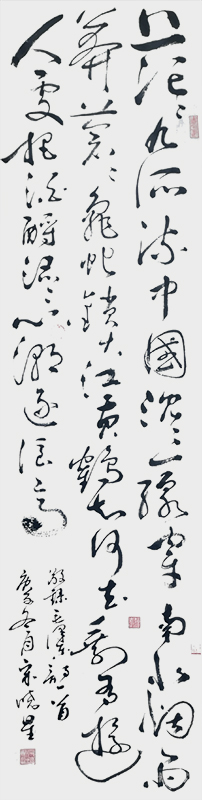 茫々九派流中國沈々一線穿南北烟雨
莽蒼々龜蛇鎖大江黃鶴知何去剩有遊
人處把酒酹滔々心潮逐浪高
敬錄毛澤東詞一首
庚子冬月宋曉星